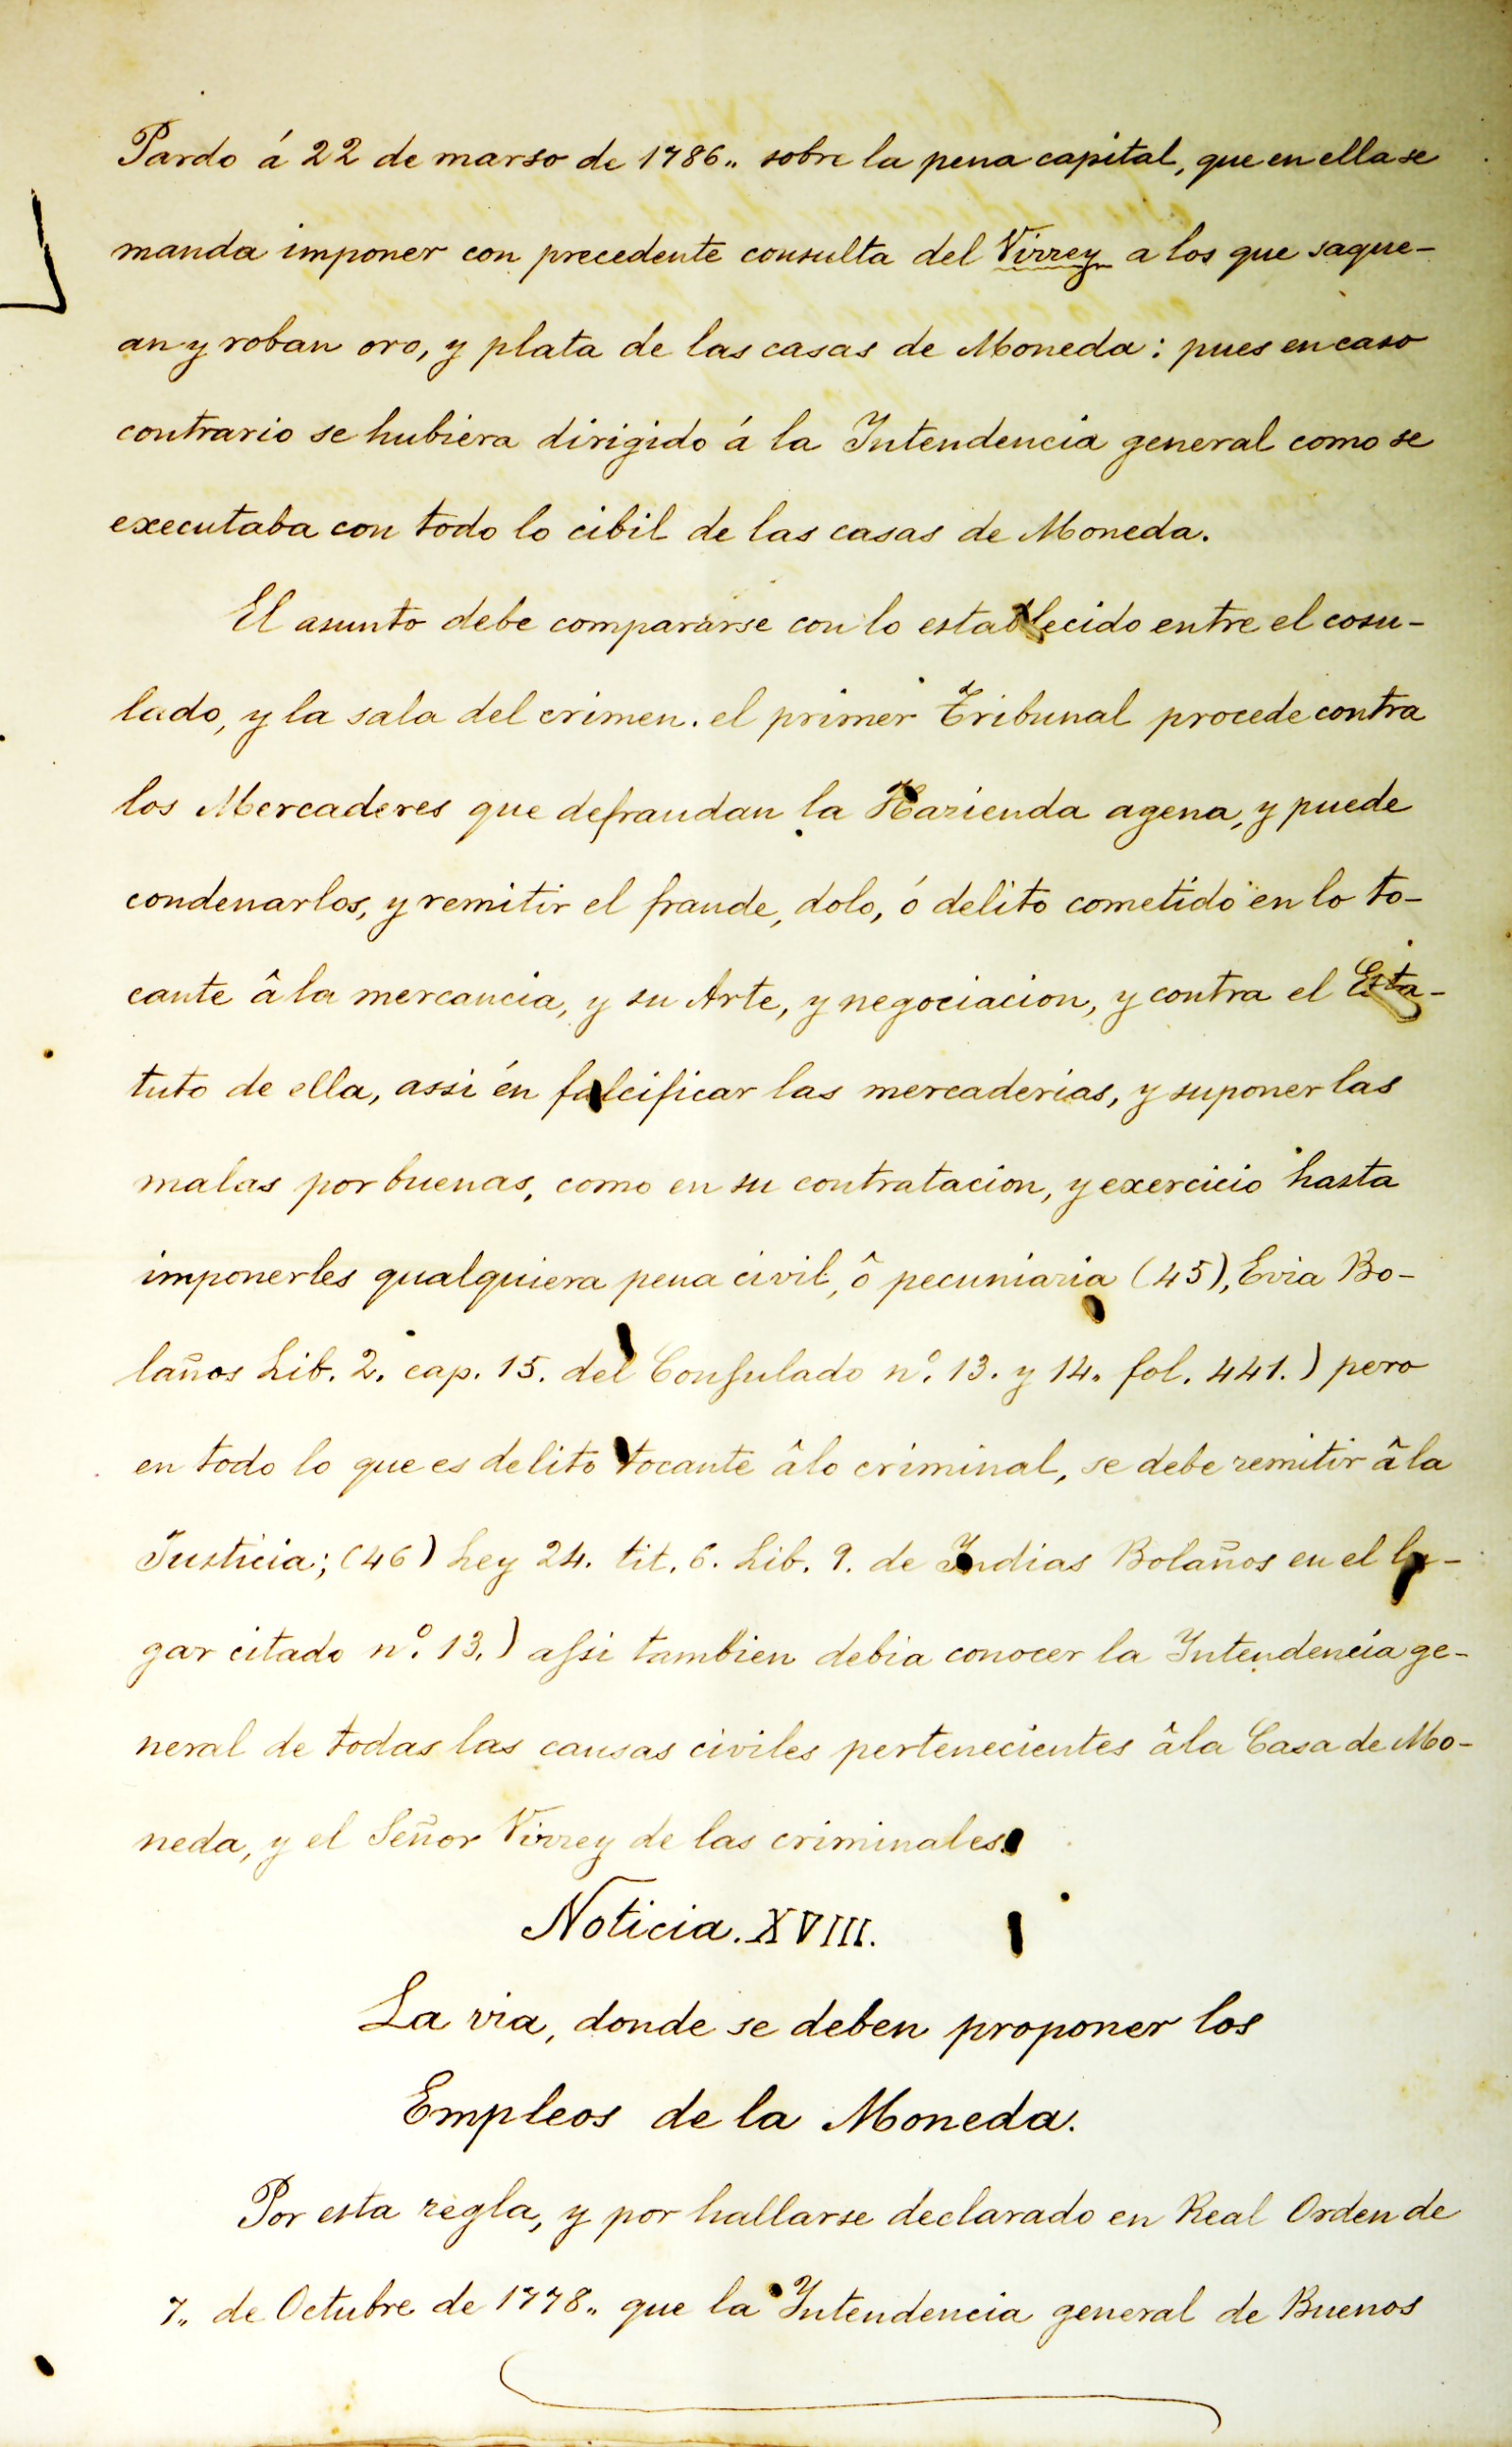 Pardo á 22 de marso de 1786.. sobre la pena capital, que en ella se
manda imponer con precedente consulta del Virrey a los que saque-
an y roban oro, y plata de las casas de Moneda: pues en caso
contrario se hubiera dirigido á la Intendencia general como se
executaba con todo lo cibil de las casas de Moneda.
El asunto debe compararse con lo establecido entre el cosu-
lado, y la sala del crimen. el primer Tribunal procede contra
los Mercaderes que defraudan la Hazienda agena, y puede
condenarlos, y remitir el fraude, dolo, ó delito cometido en lo to-
cante â la mercancia, y su Arte, y negociacion, y contra el Esta-
tuto de ella, assi én falcificar las mercaderias, y suponer las
malas por buenas, como en su contratacion, y exercicio hasta
imponerles qualquiera pena civil, ô pecuniaria (45), Evia Bo-
laños Lib. 2. cap. 15. del Consulado nº. 13. y 14. fol. 441.) pero
en todo lo que es delito tocante â lo criminal, se debe remitir â la
Justicia; (46) Ley 24. tit. 6. Lib. 9. de Indias Bolaños en el lu-
gar citado nº. 13.) assi tambien debia conocer la Intendencia ge-
neral de todas las causas civiles pertenecientes â la Casa de Mo-
neda, y el Señor Virrey de las criminales.
Noticia. XVIII.
La via, donde se deben proponer los
Empleos de la Moneda.
Por esta regla, y por hallarse declarado en Real Orden de
7.. de Octubre de 1778.. que la Intendencia general de Buenos